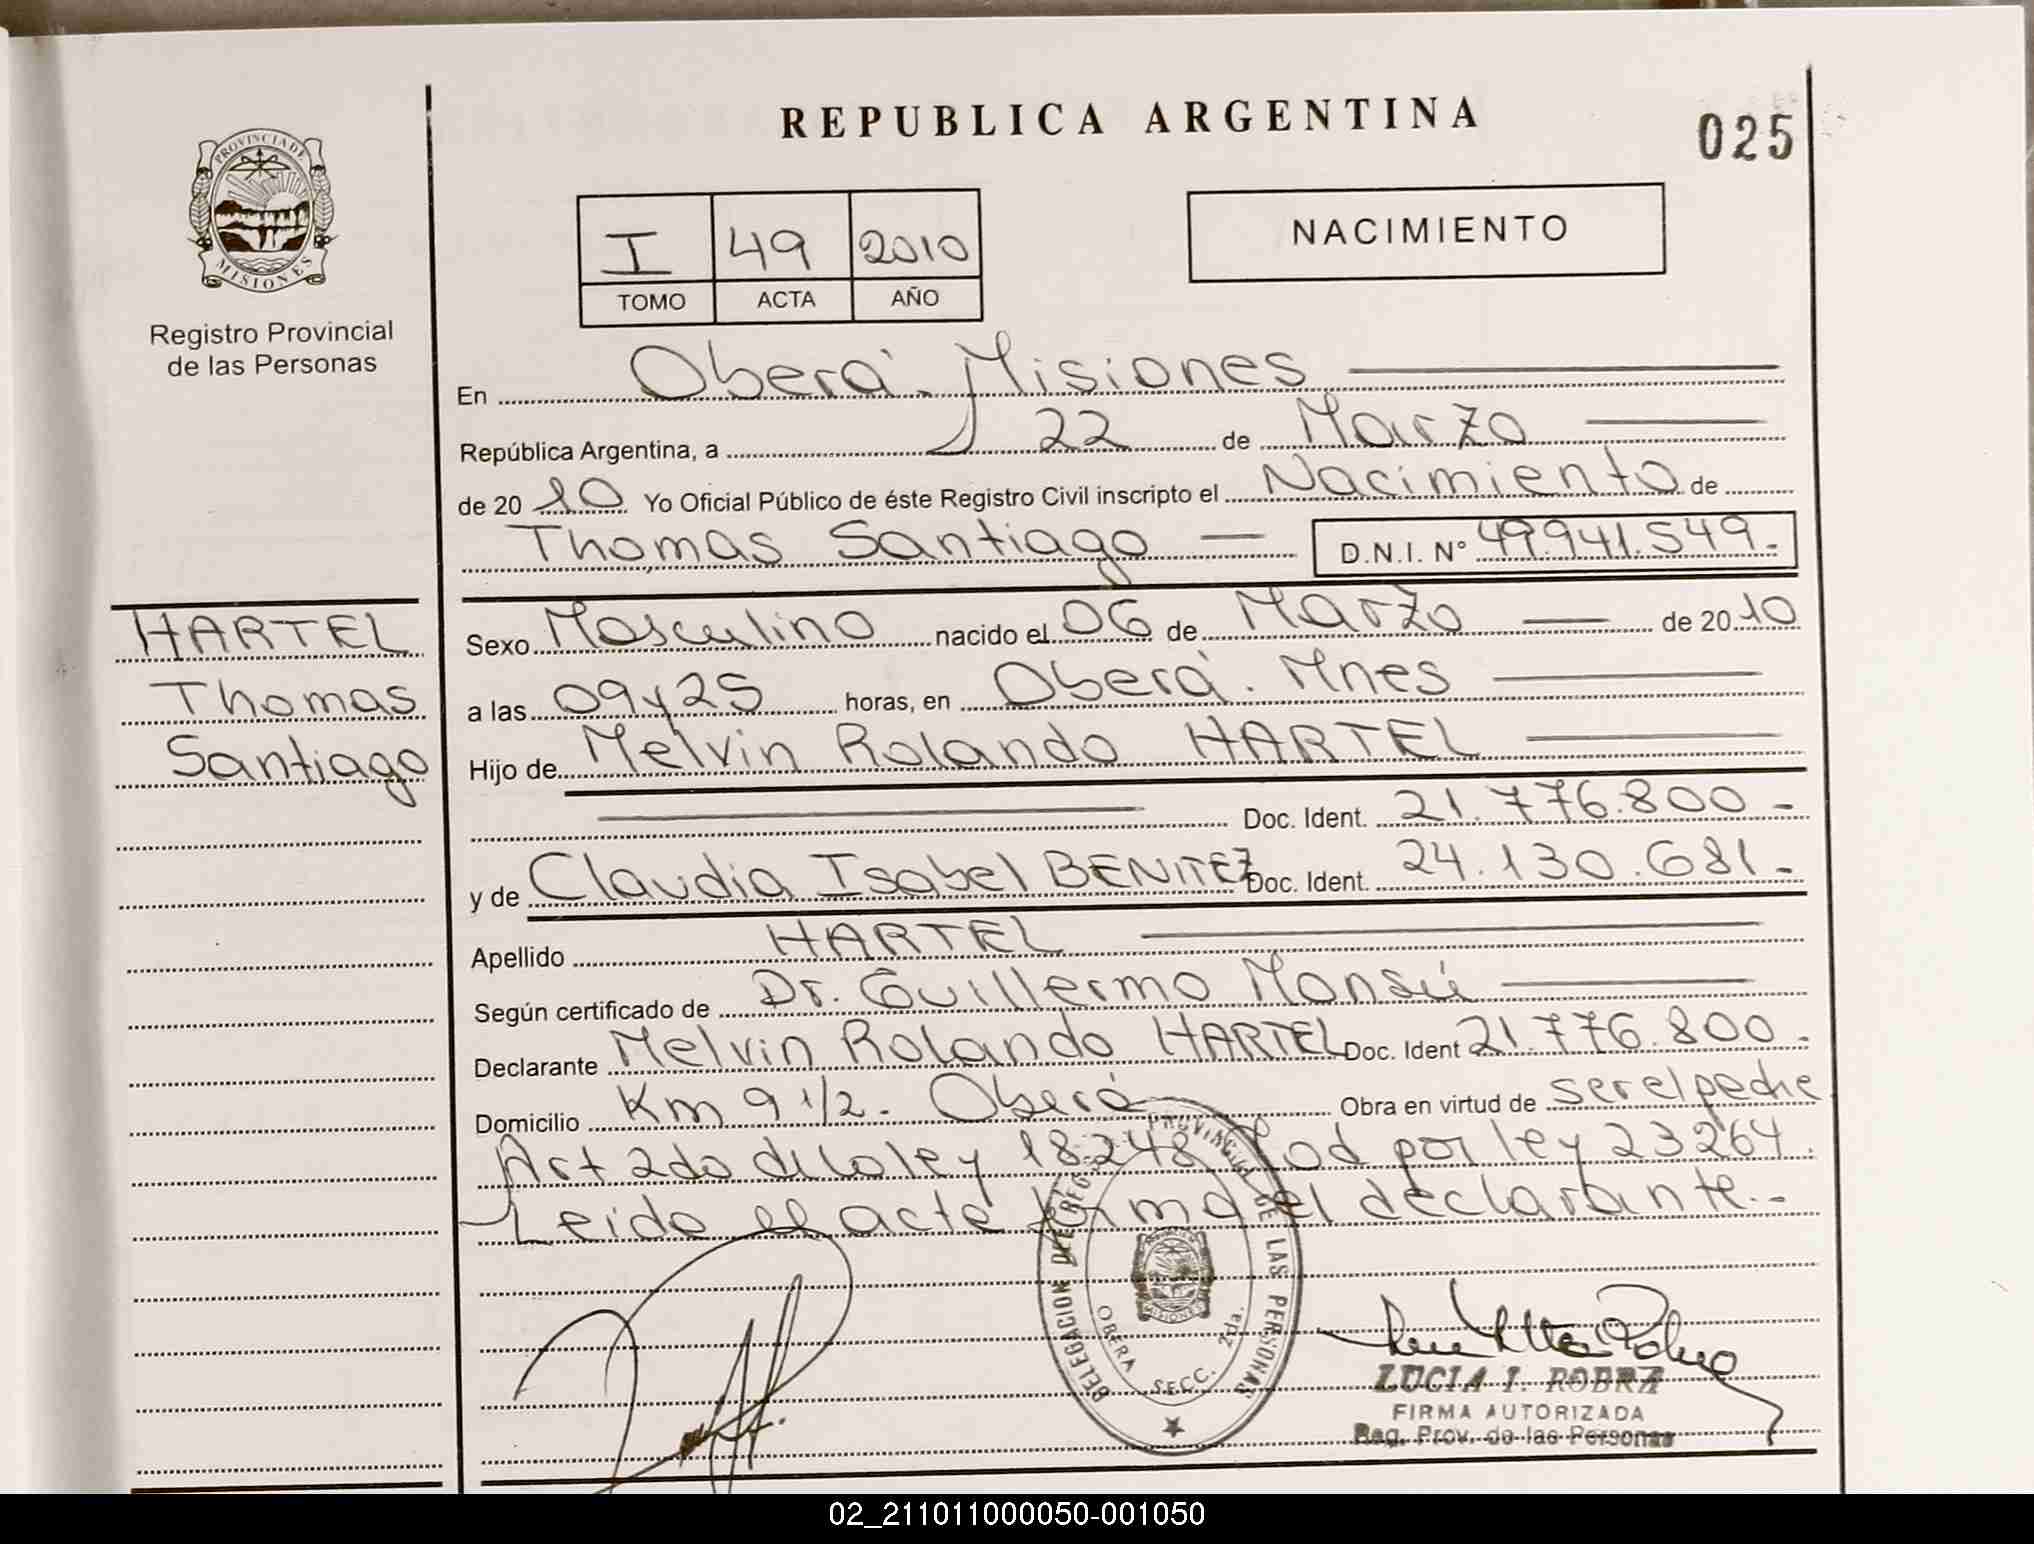 REPUBLICA ARGENTINA
025
PROVINCIA DE
MISIONES
Registro Provincial
de las Personas
I 49 2010
TOMO ACTA AÑO
NACIMIENTO
En Oberá. Misiones
República Argentina, a 22 de Marzo
de 20 10 Yo Oficial Público de éste Registro Civil inscripto el Nacimiento de
Thomas Santiago D.N.I. N° 49.941.549.-
HARTEL
Thomas
Santiago
Sexo Masculino nacido el 06 de Marzo de 20 10
a las 09 y 25 horas, en Oberá. Mnes
Hijo de Melvin Rolando HARTEL
Doc. Ident. 21.776.800-
y de Claudia Isabel BENITEZ Doc. Ident. 24.130.681-
Apellido HARTEL
Según certificado de Dr. Guillermo Monsú
Declarante Melvin Rolando HARTEL Doc. Ident 21.776.800-
Domicilio Km 9 1/2. Oberá Obra en virtud de ser el padre
Art 2do de la ley 18.248 Mod por ley 23264.
Leido el acta firma el declarante.-
DELEGACION DEL REG. PROVINCIAL DE LAS PERSONAS
MISIONES
OBERA SECC. 2da.
LUCIA I.
FIRMA AUTORIZADA
Reg. Prov. de las Personas
02_211011000050-001050